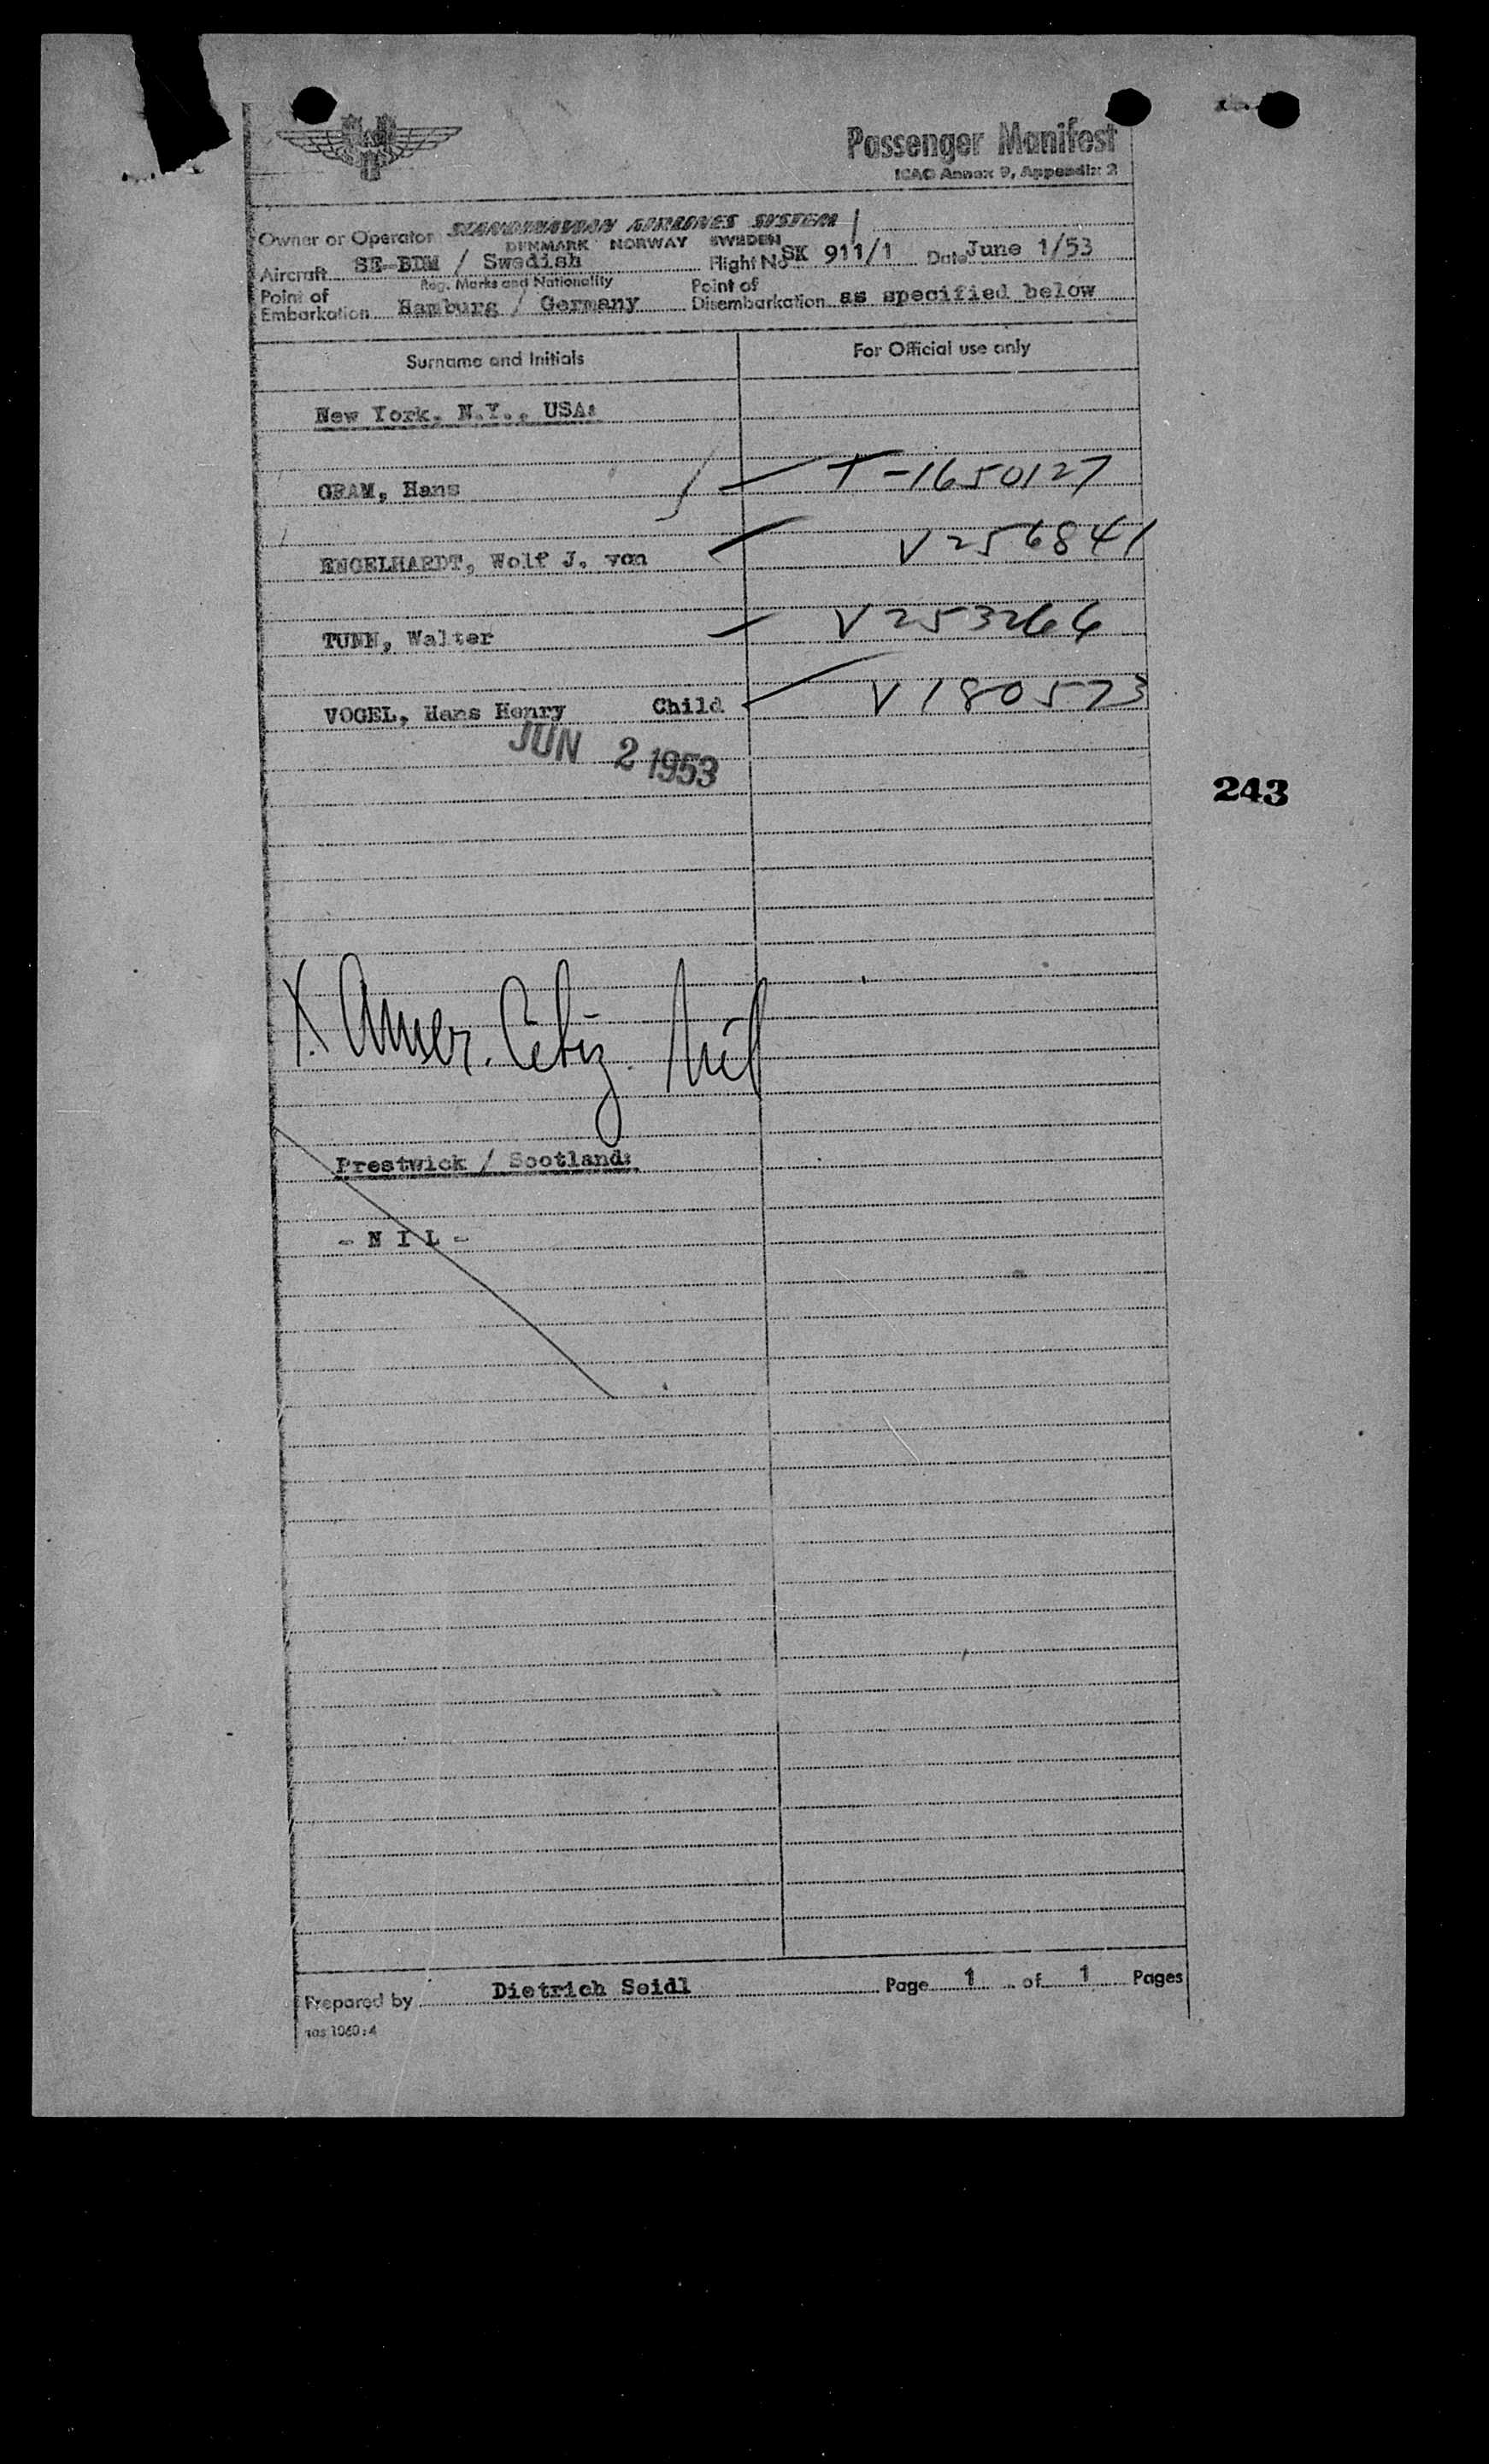 Passenger Manifest
ICAO Annex 9, Appendix 2
Owner or Operator SCANDINAVIAN AIRLINES SYSTEM
DENMARK NORWAY SWEDEN
Aircraft SE-BDM / Swedish Flight No SK 911/1 Date June 1/53
Reg. Marks and Nationality
Point of Embarkation Hamburg / Germany Point of Disembarkation as specified below
Surname and Initials For Official use only
New York. N.Y., USA:
GRAM, Hans T-1650127
ENGELHARDT, Wolf J. von V256841
TUNN, Walter V253266
VOGEL, Hans Henry Child V180573
JUN 2 1953
243
X. Amer. Citiz. Nil
Prestwick / Scotland:
- N I L -
Prepared by Dietrich Seidl Page 1 of 1 Pages